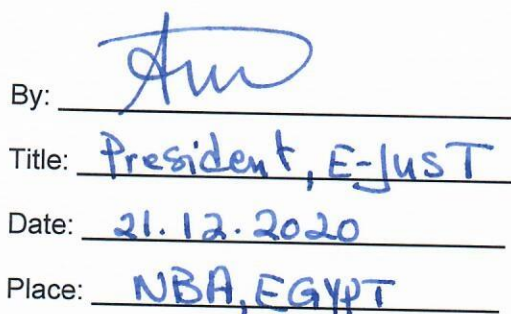 By:
Title: President, E-JUST
Date: 21.12.2020
Place: NBA, EGYPT